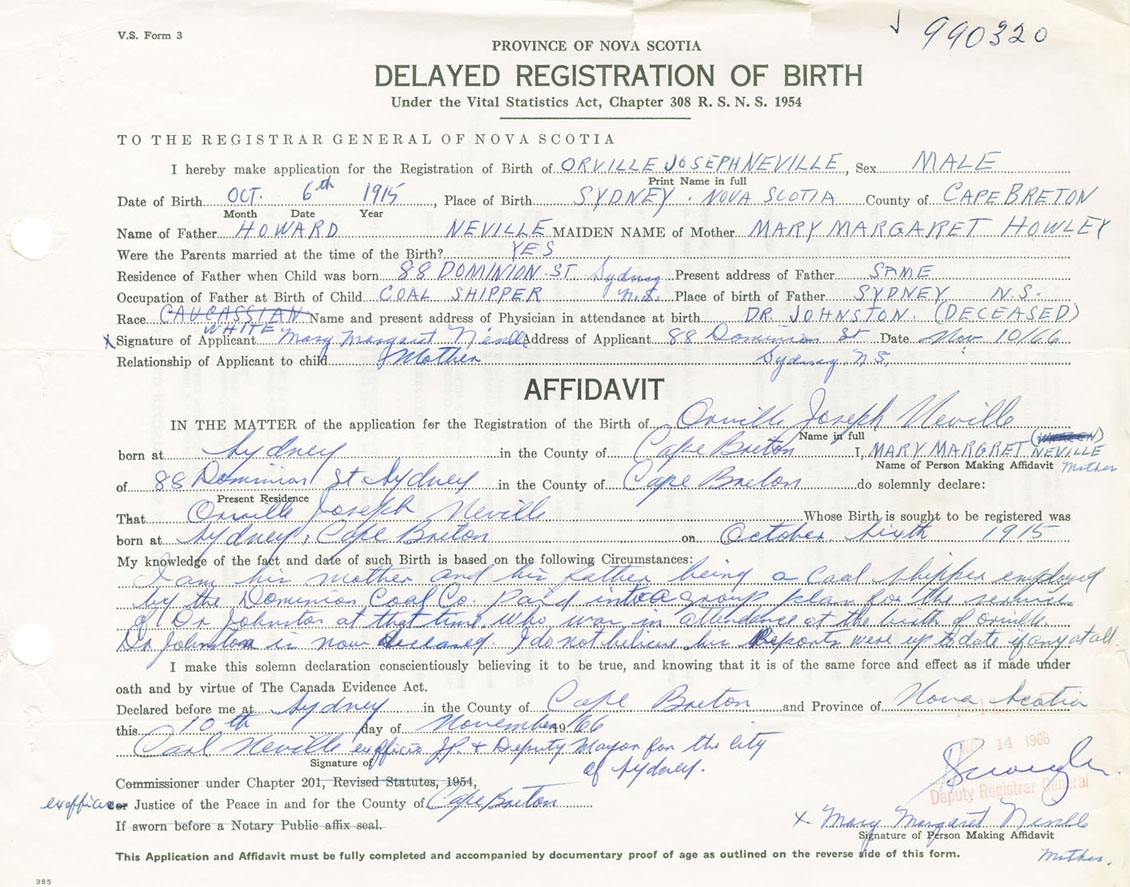 V.S. Form 3
990320
PROVINCE OF NOVA SCOTIA
DELAYED REGISTRATION OF BIRTH
Under the Vital Statistics Act, Chapter 308 R. S. N. S. 1954
TO THE REGISTRAR GENERAL OF NOVA SCOTIA
I hereby make application for the Registration of Birth of ORVILLE JOSEPH NEVILLE, Sex MALE
Print Name in full
Date of Birth OCT. 6th 1915, Place of Birth SYDNEY. NOVA SCOTIA County of CAPE BRETON
Month Date Year
Name of Father HOWARD NEVILLE MAIDEN NAME of Mother MARY MARGARET HOWLEY
Were the Parents married at the time of the Birth? YES
Residence of Father when Child was born 88 DOMINION ST Sydney N.S. Present address of Father SAME
Occupation of Father at Birth of Child COAL SHIPPER Place of birth of Father SYDNEY N.S.
Race CAUCASSIAN Name and present address of Physician in attendance at birth DR JOHNSTON. (DECEASED)
WHITE
X Signature of Applicant Mary Margaret Neville Address of Applicant 88 Dominion St Date Nov 10/66
Relationship of Applicant to child Mother Sydney, N.S.
AFFIDAVIT
IN THE MATTER of the application for the Registration of the Birth of Orville Joseph Neville
Name in full
born at Sydney in the County of Cape Breton I, MARY MARGRET NEVILLE
Name of Person Making Affidavit Mother
of 88 Dominion St Sydney in the County of Cape Breton do solemnly declare:
Present Residence
That Orville Joseph Neville Whose Birth is sought to be registered was
born at Sydney, Cape Breton on October sixth 1915
My knowledge of the fact and date of such Birth is based on the following Circumstances:
I am his mother and his father being a coal shipper employed
by the Dominion Coal Co. paid into a group plan for the service
of Dr Johnston at that time who was in attendance at the birth of Orville.
Dr Johnston is now deseased. I do not believe his Reports were up to date if any at all.
I make this solemn declaration conscientiously believing it to be true, and knowing that it is of the same force and effect as if made under
oath and by virtue of The Canada Evidence Act.
Declared before me at Sydney in the County of Cape Breton and Province of Nova Scotia
this 10th day of November 1966
Carl Neville exofficio J.P. & Deputy Mayor for the City
Signature of
of Sydney.
NOV 14 1966
Commissioner under Chapter 201, Revised Statutes, 1954,
Deputy Registrar General
exofficio or Justice of the Peace in and for the County of Cape Breton
If sworn before a Notary Public affix seal.
X Mary Margaret Neville
Signature of Person Making Affidavit
Mother.
This Application and Affidavit must be fully completed and accompanied by documentary proof of age as outlined on the reverse side of this form.
385